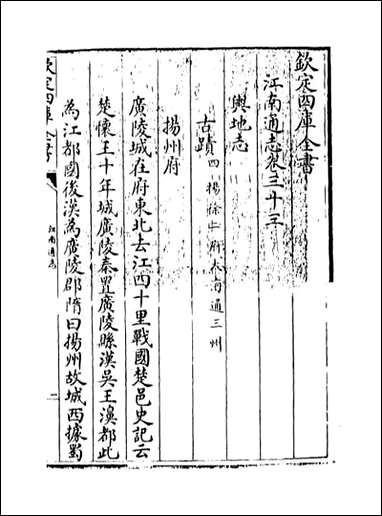 欽定四庫全書
江南通志卷三十三
輿地志
古蹟四 揚徐二府太海通三州
揚州府
廣陵城在府東北去江四十里戰國楚邑史記云
楚懷王十年城廣陵秦置廣陵縣漢吳王濞都此
為江都國後漢為廣陵郡隋曰揚州故城西據蜀
欽定四庫全書
江南通志
一